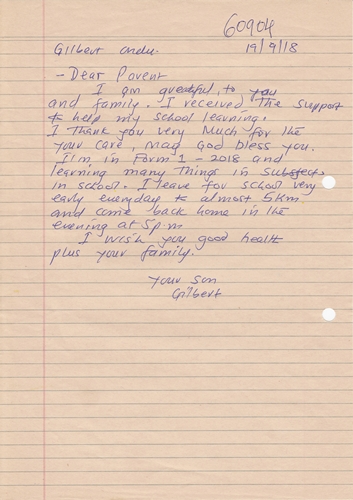 60904
Gilbert Ondu.
19/9/18
- Dear Parent
I am greatful, to you
and family. I received the support
to help my school learning.
I Thank you very Much for the
your care, may God bless you.
I'm in Form 1 - 2018 and
learning many Things in subject.
in school. I leave for school very
early everyday to almost 5km
and come back home in the
evening at 5p.m
I wish you good health
plus your family.
your son
Gilbert